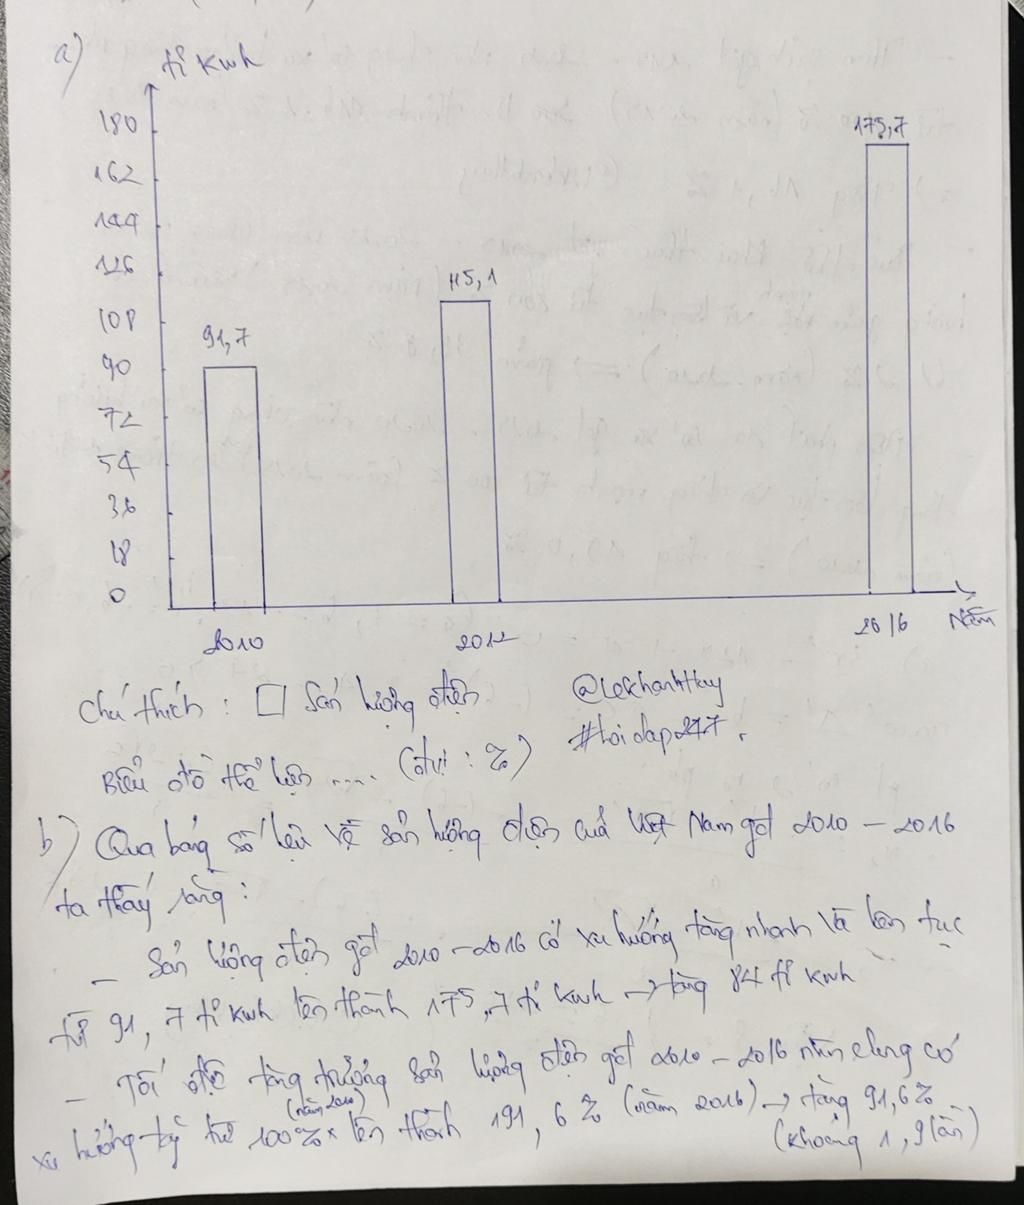 a)
tỉ kwh
180
162
144
126
108
90
72
54
36
18
0
91,7
115,1
175,7
2010
2012
2016
Năm
Chú thích : □ Sản lượng điện
@lekhanhthuy
#hoidap247.
Biểu đồ thể hiện .... (đvị : %)
b) Qua bảng số liệu về sản lượng điện của Việt Nam gđ 2010 - 2016
ta thấy rằng :
- Sản lượng điện gđ 2010 - 2016 có xu hướng tăng nhanh và liên tục
từ 91,7 tỉ kwh lên thành 175,7 tỉ kwh → tăng 84 tỉ kwh
- Tốc độ tăng trưởng sản lượng điện gđ 2010 - 2016 nhìn chung có
xu hướng từ 100% (năm 2010) lên thành 191,6% (năm 2016) → tăng 91,6%
(khoảng 1,9 lần)